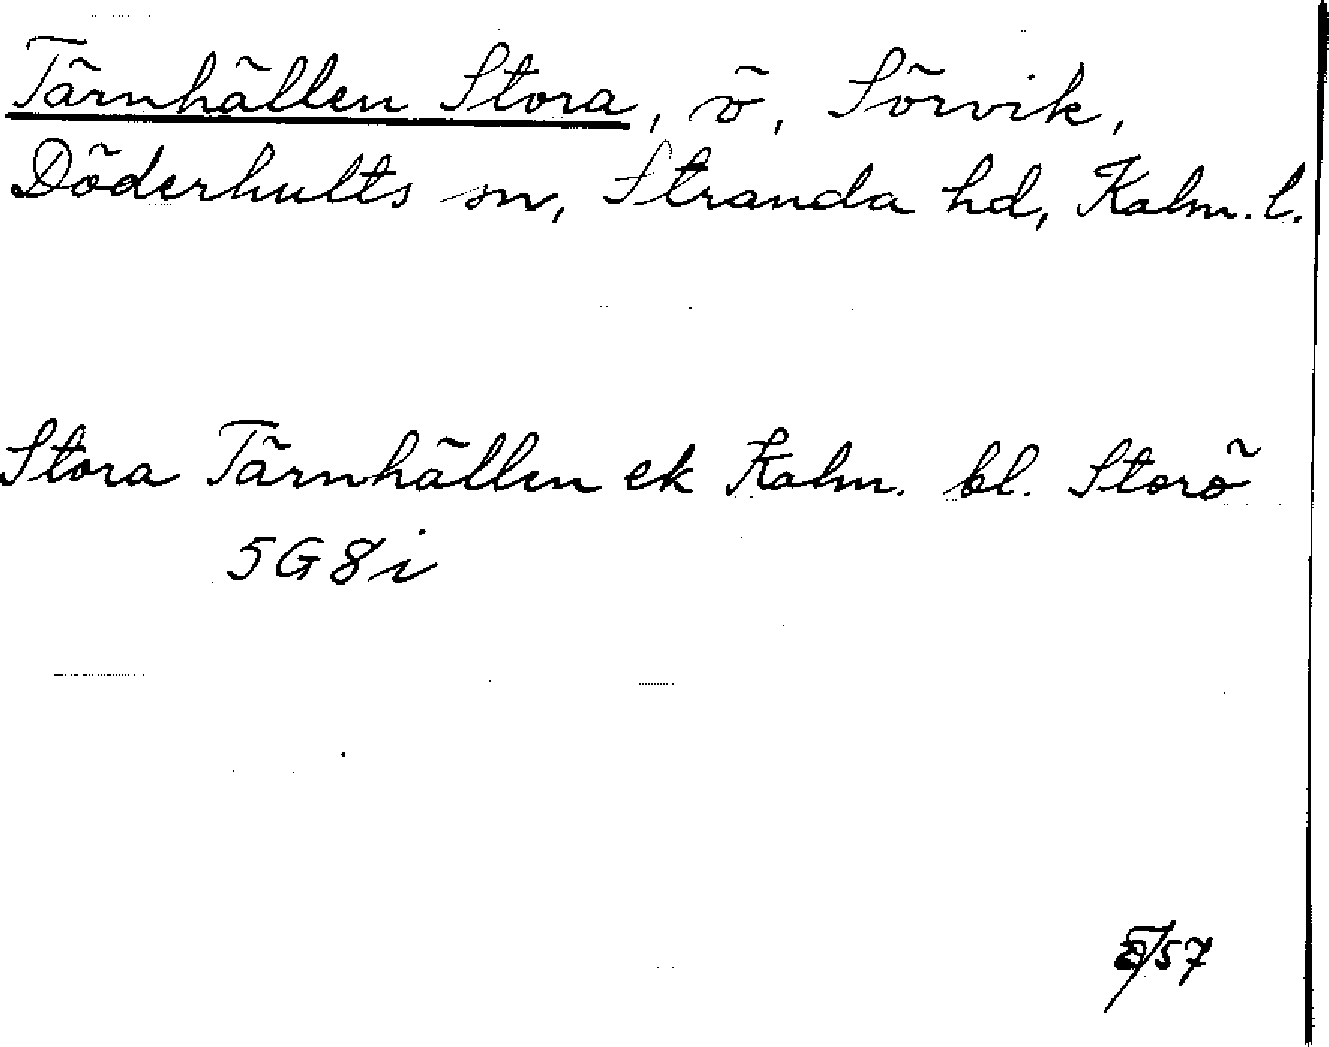 Tärnhällen Stora, ö, Sörvik,
Döderhults sn, Stranda hd, Kalm. l.
Stora Tärnhällen ek Kalm. bl. Storö
5G8i